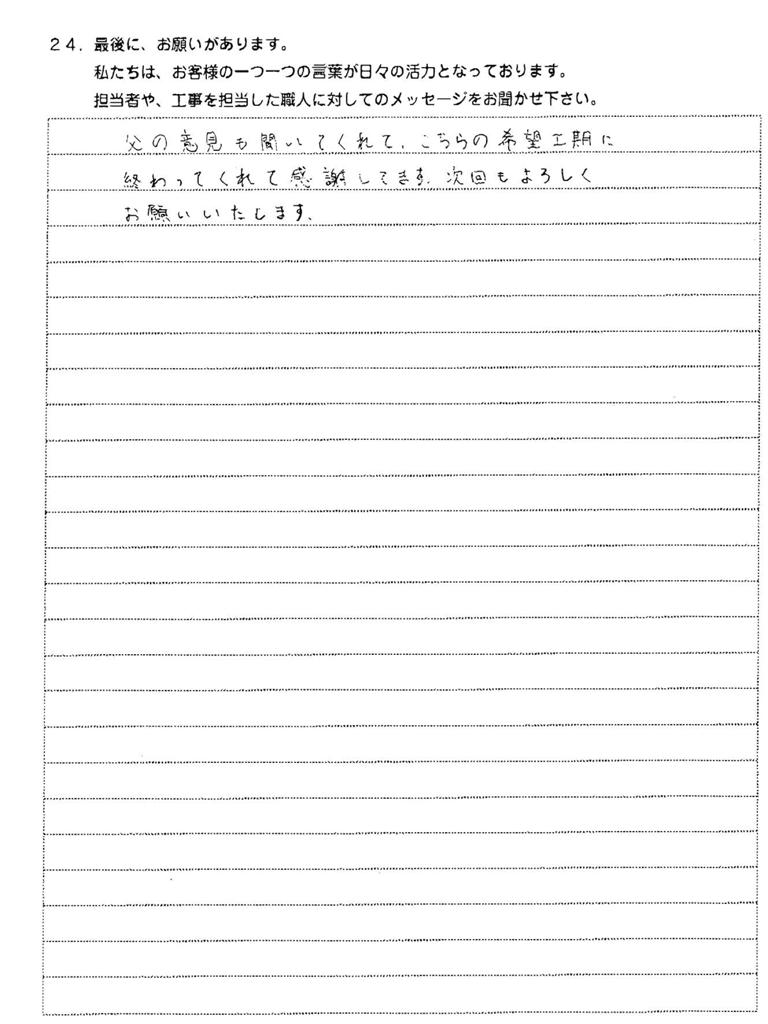 24. 最後に、お願いがあります。
私たちは、お客様の一つ一つの言葉が日々の活力となっております。
担当者や、工事を担当した職人に対してのメッセージをお聞かせ下さい。
父の意見も聞いてくれて、こちらの希望工期に
終わってくれて感謝してます。次回もよろしく
お願いいたします。